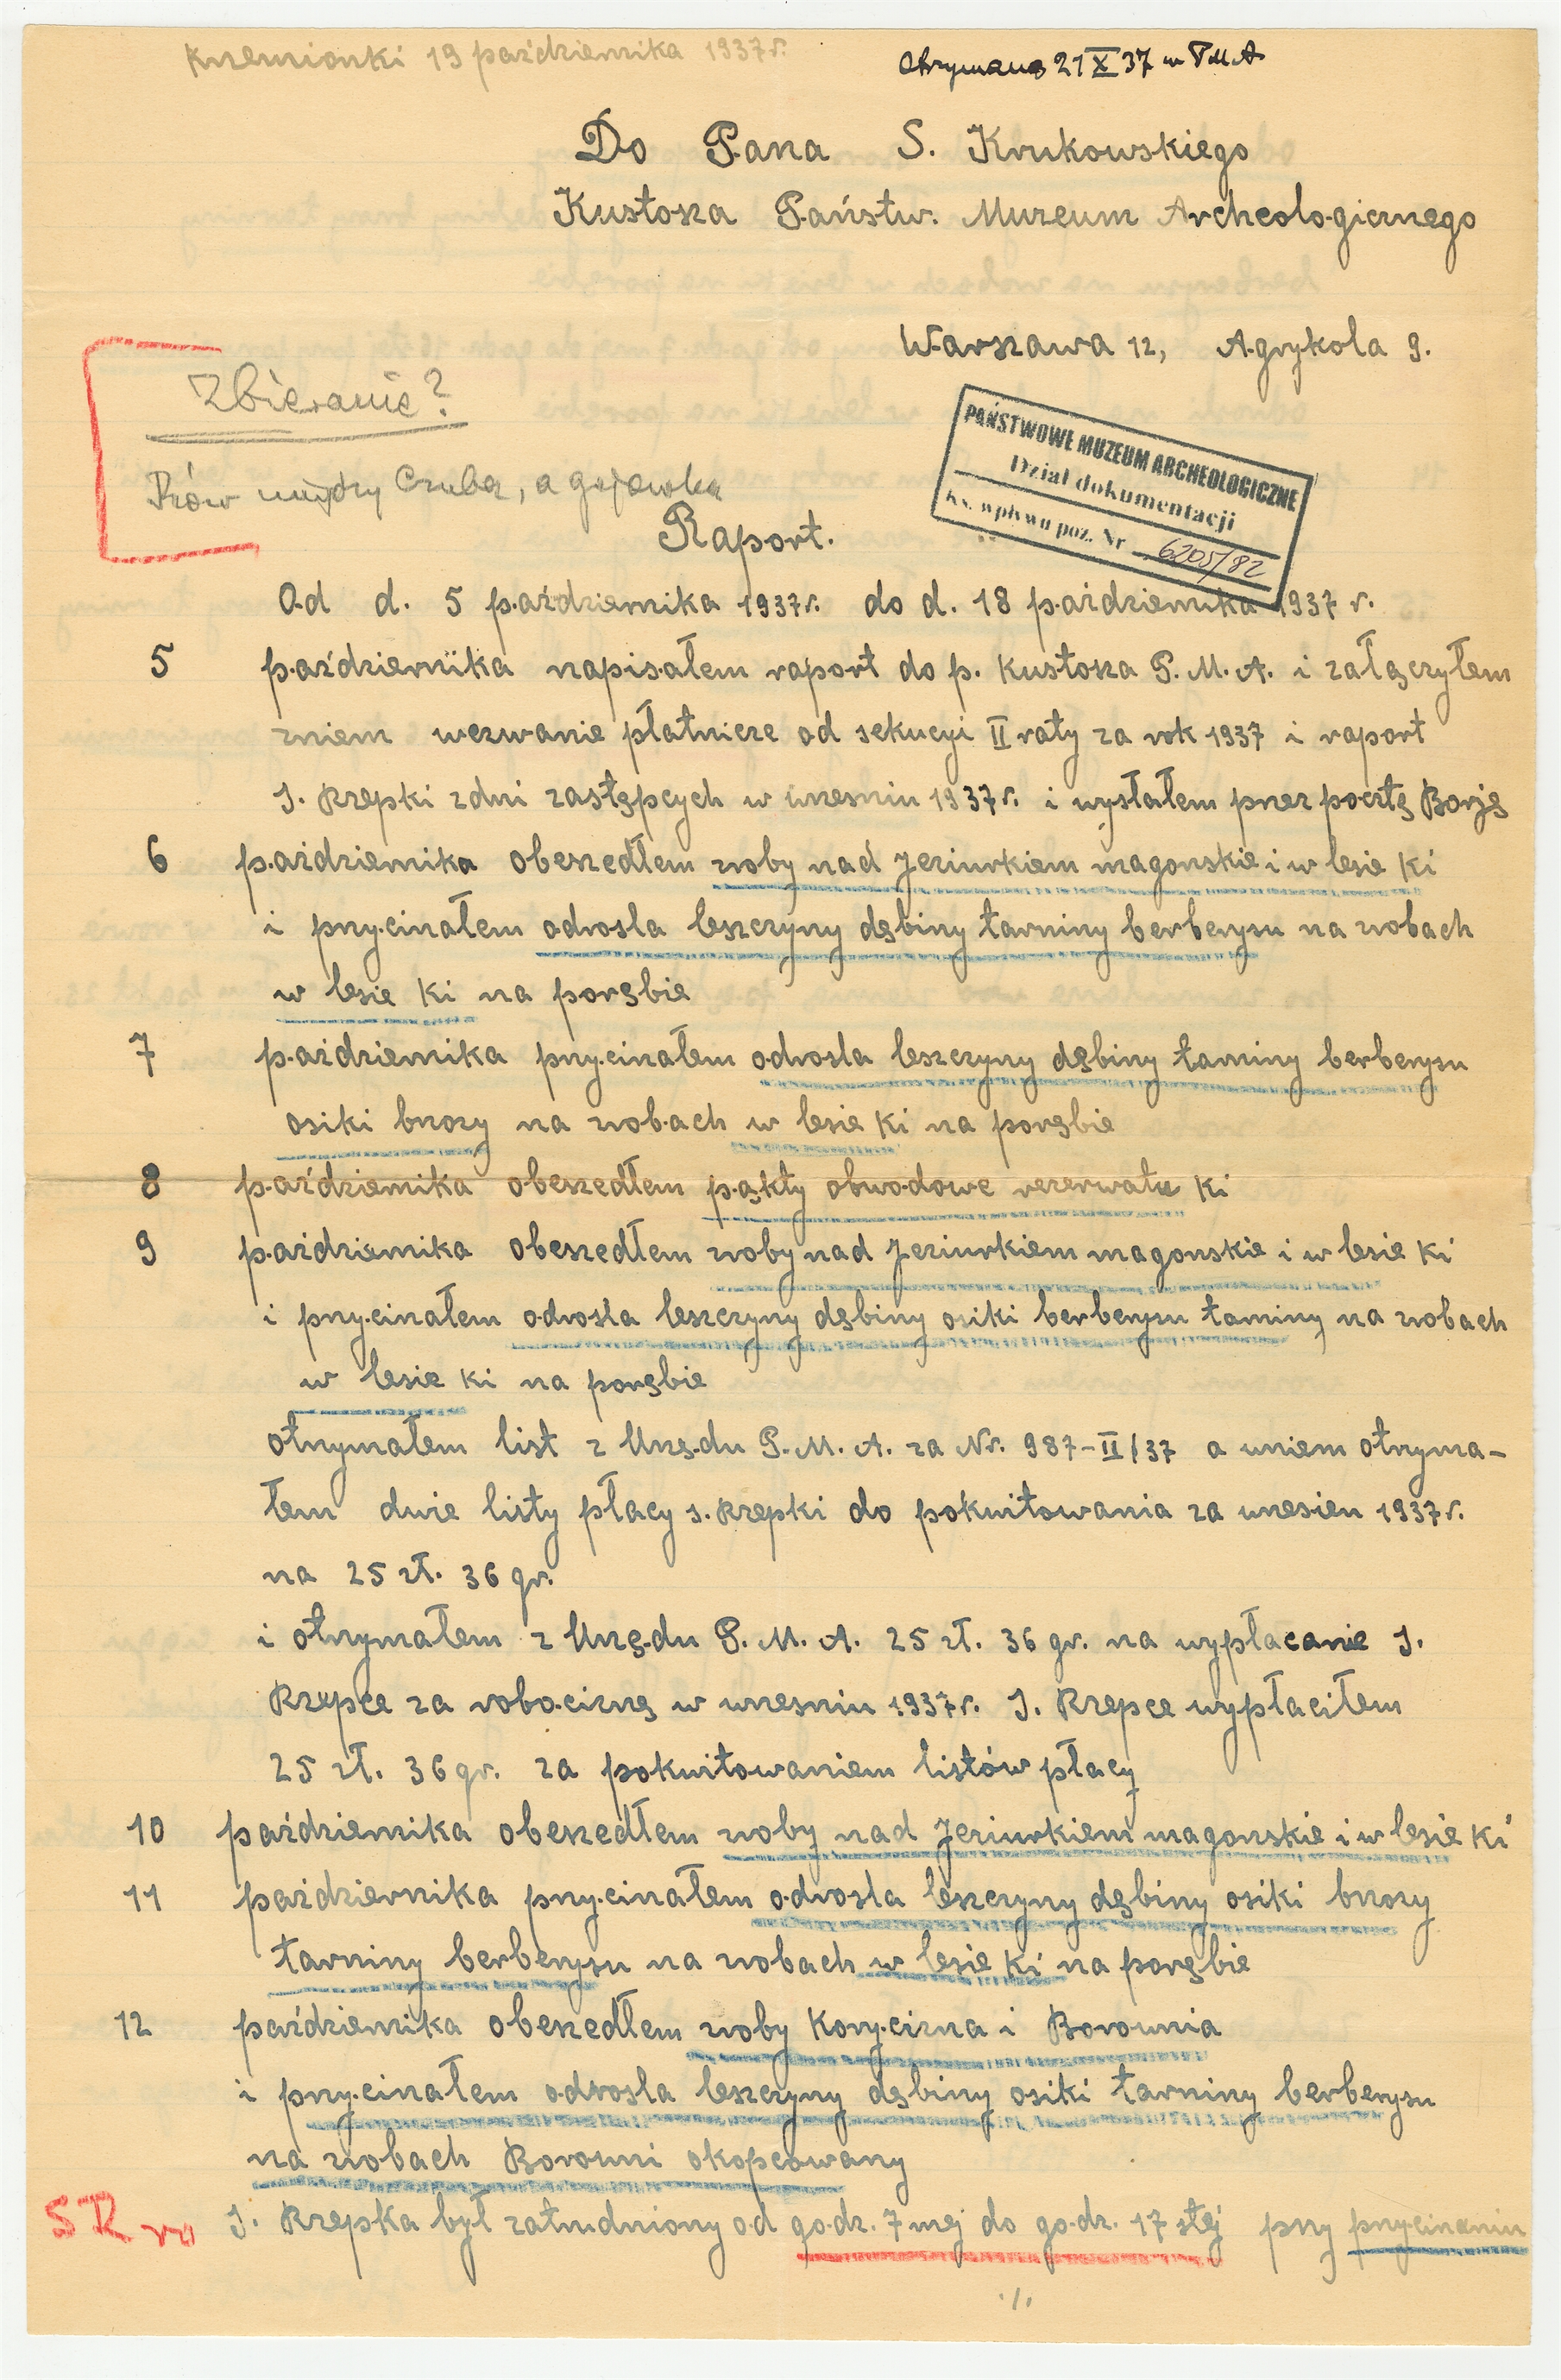 Krzemionki 19 października 1937 r.
Otrzymano 21 X 37 w PMA
Do Pana S. Krukowskiego
Kustosza Państw. Muzeum Archeologicznego
Warszawa 12, Agrykola 9.
Zbieranie?
Rów między Czubą, a gajówką
PAŃSTWOWE MUZEUM ARCHEOLOGICZNE
Dział dokumentacji
Ks. wpływu poz. Nr 6205/82
Raport.
Od d. 5 października 1937 r. do d. 18 października 1937 r.
5 października napisałem raport do p. Kustosza P. M. A. i załączyłem
zniem wezwanie płatnicze od sekucyi II raty za rok 1937 i raport
J. Rzepki zdni zastępcych w wrzesniu 1937 r. i wysłałem przez pocztę Borję
6 października obeszedłem zroby nad Jeziurkiem magonskie i w lesie Ki
i przycinałem odrosla leszczyny dębiny tarniny berberysu na zrobach
w lesie Ki na porębie
7 października przycinałem odrosla leszczyny dębiny taminy berberysu
osiki brzozy na zrobach w lesie Ki na porębie
8 października obeszedłem pąkty obwodowe rezerwatu Ki
9 października obeszedłem zroby nad Jeziurkiem magonskie i w lesie Ki
i przycinałem odrosla leszczyny dębiny osiki berberysu taminy na zrobach
w lesie Ki na porębie
otrzymałem list z Urzędu P. M. A. za Nr. 987-II/37 a wniem otrzyma-
łem dwie listy płacy J. Rzepki do pokwitowania za wrzesien 1937 r.
na 25 zł. 36 gr.
i otrzymałem z Urzędu P. M. A. 25 zł. 36 gr. na wypłacanie J.
Rzepce za robociznę w wrzesniu 1937 r. J. Rzepce wypłaciłem
25 zł. 36 gr. za pokwitowaniem listów płacy
10 października obeszedłem zroby nad Jeziurkiem magonskie i w lesie Ki
11 października przycinałem odrosla leszczyny dębiny osiki brzozy
tarniny berberysu na zrobach w lesie Ki na porębie
12 października obeszedłem zroby Korycizna i Borownia
i przycinałem odrosla leszczyny dębiny osiki tarniny berberysu
na zrobach Borowni okopcowany
SR J. Rzepka był zatrudniony od godz. 7 mej do godz. 17 stej przy przycinaniu
./.